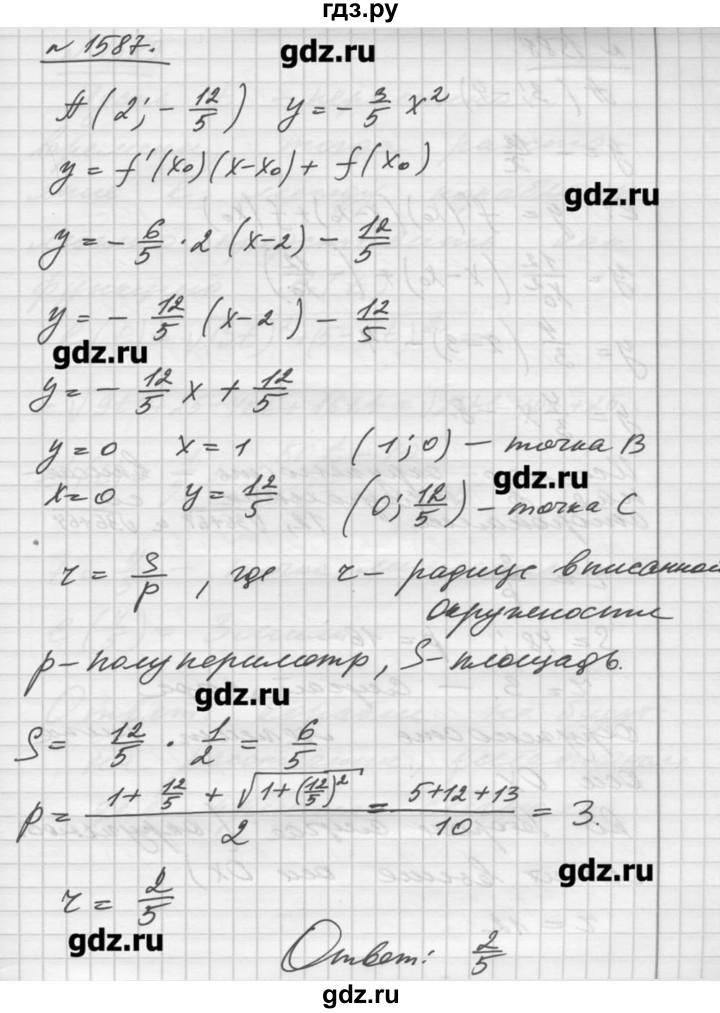 гдз.ру
№ 1587.
gdz.ru
A(2; -12/5) y = -3/5 x²
y = f'(x₀)(x-x₀) + f(x₀)
gdz.ru
y = -6/5 · 2 (x-2) - 12/5
y = -12/5 (x-2) - 12/5
gdz.ru
y = -12/5 x + 12/5
y = 0 x = 1 (1; 0) - точка B
gdz.ru
x = 0 y = 12/5 (0; 12/5) - точка C
r = S/p, где r - радиус вписанной
окружности
p - полупериметр, S - площадь.
gdz.ru
S = 12/5 · 1/2 = 6/5
p = (1 + 12/5 + √(1 + (12/5)²))/2 = (5+12+13)/10 = 3.
gdz.ru
r = 2/5
gdz.ru
Ответ: 2/5
gdz.ru